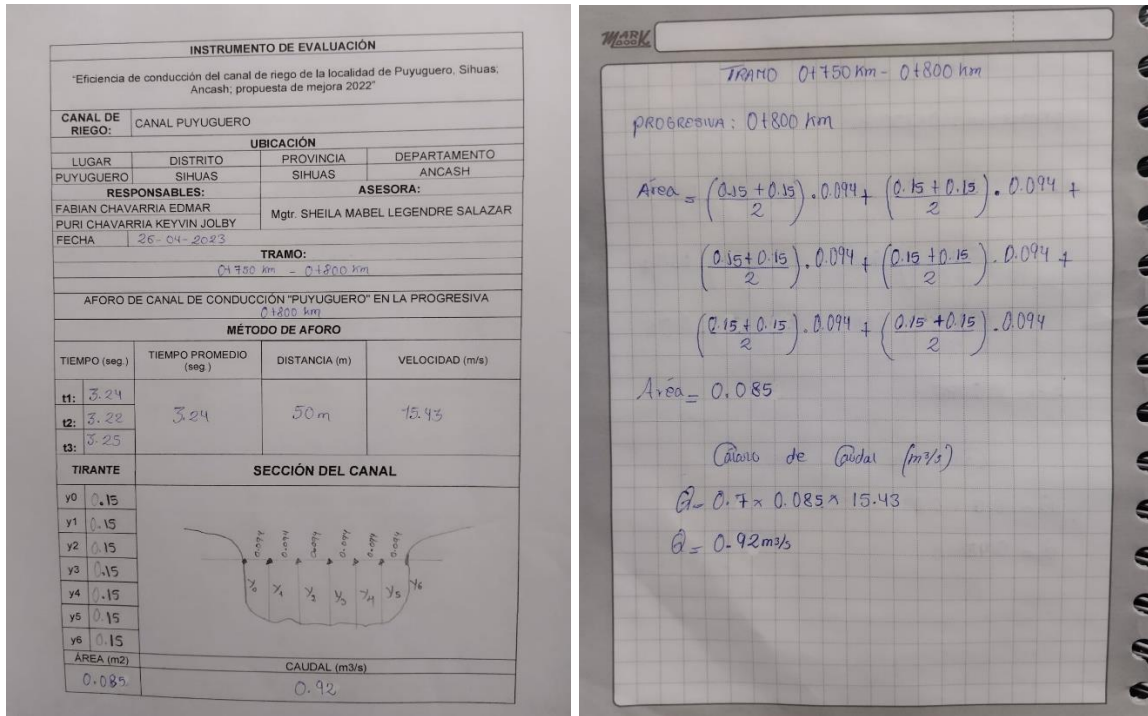 INSTRUMENTO DE EVALUACIÓN
"Eficiencia de conducción del canal de riego de la localidad de Puyuguero, Sihuas;
Ancash; propuesta de mejora 2022"
CANAL DE RIEGO: CANAL PUYUGUERO
UBICACIÓN
LUGAR DISTRITO PROVINCIA DEPARTAMENTO
PUYUGUERO SIHUAS SIHUAS ANCASH
RESPONSABLES: ASESORA:
FABIAN CHAVARRIA EDMAR
PURI CHAVARRIA KEYVIN JOLBY
Mgtr. SHEILA MABEL LEGENDRE SALAZAR
FECHA 26-04-2023
TRAMO:
0+750 km - 0+800 km
AFORO DE CANAL DE CONDUCCIÓN "PUYUGUERO" EN LA PROGRESIVA
0+800 km
MÉTODO DE AFORO
TIEMPO (seg.) TIEMPO PROMEDIO (seg.) DISTANCIA (m) VELOCIDAD (m/s)
t1: 3.24
t2: 3.22 3.24 50m 15.43
t3: 3.25
TIRANTE SECCIÓN DEL CANAL
y0 0.15
y1 0.15
y2 0.15
y3 0.15
y4 0.15
y5 0.15
y6 0.15
0.094 0.094 0.094 0.094 0.094 0.094
y0 y1 y2 y3 y4 y5 y6
ÁREA (m2) CAUDAL (m3/s)
0.085 0.92
MARK BOOK
TRAMO 0+750 km - 0+800 km
PROGRESIVA: 0+800 km
Área = ((0.15 + 0.15)/2) . 0.094 + ((0.15 + 0.15)/2) . 0.094 +
((0.15 + 0.15)/2) . 0.094 + ((0.15 + 0.15)/2) . 0.094 +
((0.15 + 0.15)/2) . 0.094 + ((0.15 + 0.15)/2) . 0.094
Área = 0.085
de Caudal (m3/s)
Q = 0.7 x 0.085 x 15.43
Q = 0.92 m3/s